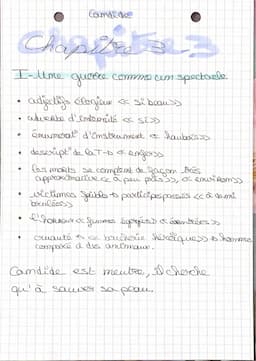 Candide
Chapitre 3
I - Une guerre comme un spectacle
• adjectifs élogieux << si beau >>
• adverbe d'intensité << si >>
• énumérat° d'instrument << hautbois >>
• descript° de la
• les morts se comptent de façon très
approximative << à peu près >>, << environ >>
• victimes faibles → participes passés << à demi
brûlées >>
• l'horreur << femmes égorgées >> << éventrées >>
• cruauté << boucherie héroïque >> → hommes
comparé à des animaux.
Candide est neutre, il cherche
qu'à sauver sa peau.